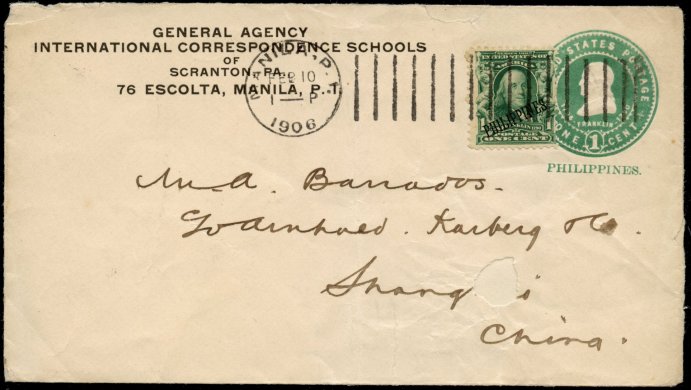 GENERAL AGENCY
INTERNATIONAL CORRESPONDENCE SCHOOLS
OF
SCRANTON, PA.
76 ESCOLTA, MANILA, P. I.
MANILA, P. I.
FEB 10
1 - P
1906
PHILIPPINES
ONE CENT
UNITED STATES POSTAGE
FRANKLIN
ONE 1 CENT
PHILIPPINES.
M. A. Barrados.
Karberg & Co.
Shang i
China.